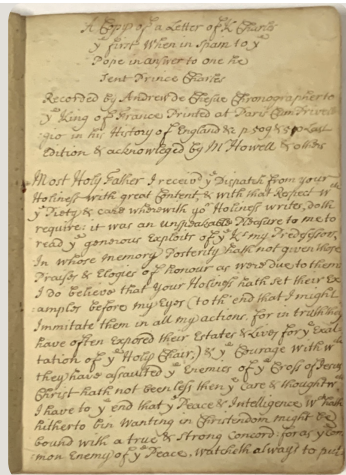 A Copy of a Letter of K Charles
yᵉ first When in Spain to yᵉ
Pope in answer to one he
sent Prince Charles
Recorded by Andrew de Chesne Chronographer to
yᵉ King of France Printed at Paris Cum Privile
gio in his History of England & p 509 & 510 Last
Edition & acknowledged by Mʳ Howell & others
Most Holy Father I receivd yᵉ Dispatch from your
Holiness with great Content, & with that Respect wᶜʰ
yᵉ Piety & care wherewith yoʳ Holiness writes, doth
require: it was an unspeakable Pleasure to me to
read yᵉ generous Exploits of yᵉ Kˢ my Predecessors,
In whose memory Posterity hath not given those
Praises & Elogies of Honour as were due to them
I do believe that your Holiness hath set their Ex
amples before my Eyes (to the end that I might
Immitate them in all my actions, for in truth they
have often Exposed their Estates & Lives for yᵉ Exal
tation of yᵉ Holy Chair,) & yᵉ Courage with wᶜʰ
they have assaulted yᵉ Enemies of yᵉ Cross of Jesus
Christ hath not been less then yᵉ Care & thought wᶜʰ
I have to yᵉ end that yᵉ Peace & Intelligence wᶜʰ hath
hitherto bin Wanting in Christendom might be
bound with a true & strong Concord: for as yᵉ Com
mon Enemy of yᵉ Peace, watcheth always to put